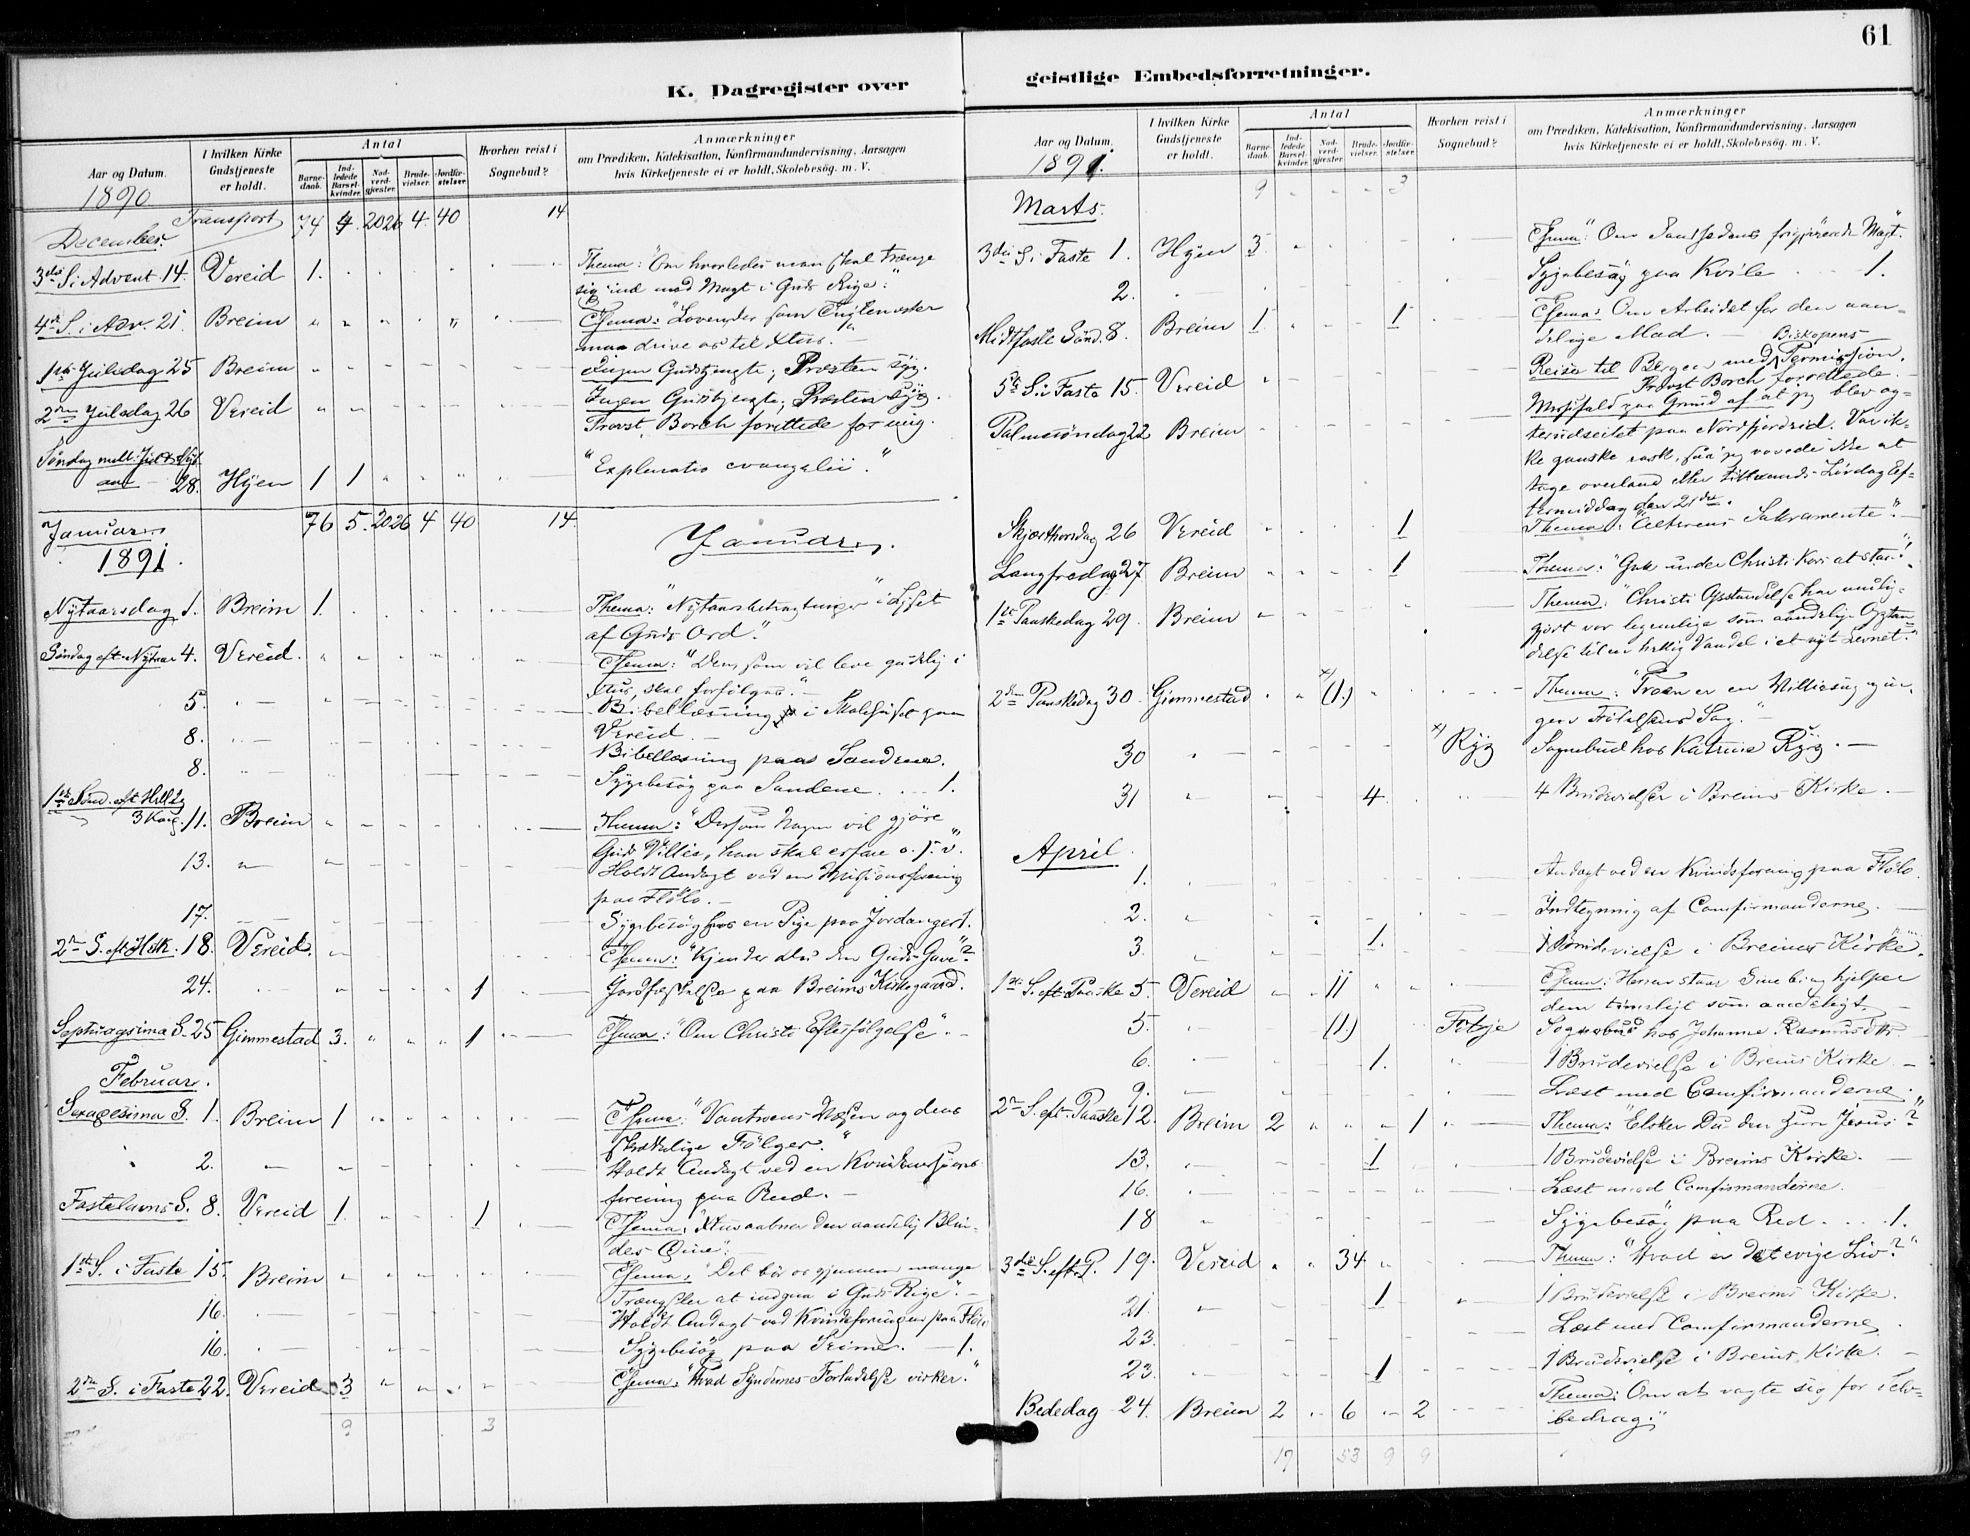 61
K. Dagregister over
Aar og Datum.
1890
I hvilken Kirke Gudstjeneste er holdt.
Antal
Barne-daab.
Ind-ledede Barsel-kvinder.
Nad-verd-gjæster.
Brude-vielser.
Jordfæ-stelser.
Hvorhen reist i Sognebud?
Anmærkninger
om Prædiken, Katekisation, Konfirmandundervisning, Aarsagen
hvis Kirketjeneste ei er holdt, Skolebesøg. m. V.
Transport 74 4 2026 4 40 14
December.
3die S. i Advent 14. Vereid 1. Thema: "Om hvorledes man skal trænge
sig ind med Magt i Guds Rige."
4de S. i Adv. 21. Breim Thema: "Loven, der som Tugtemester
maa drive os til Xtus." —
1ste Juledag 25 Breim Ingen Gudstjeneste; Præsten syg.
2den Juledag 26 Vereid Ingen Gudstjeneste; Præsten syg.
Provst Borch forrettede for mig.
Søndag mell. Jul & Nyt
aar — 28. Hyen 1 1 "Explicatio evangelii."
76 5. 2026 4 40 14.
Januar
1891.
Januar.
Nytaarsdag 1. Breim 1. Thema: "Nytaarsbetragtninger i Lyset
af Guds Ord."
Søndag eft. Nytaar 4. Vereid. Thema: "Den, som vil leve gudelig i
Xtus, skal forfølges." —
5. Bibellæsning i Skolehuset paa
Vereid. —
8. Bibellæsning paa Sandene.
8. Sygebesøg paa Sandene. . . . 1.
1ste Sønd. eft. Hellig
3 Kong. 11. Breim Thema: "Dersom Nogen vil gjøre
Guds Villie, han skal erfare o. s. v."
13. Holdt Andagt ved en Missionsforening
paa Flølo. —
17. Sygebesøg hos en Pige paa Jordanger 1.
2den S. eft. H3k. 18. Vereid. Thema: "Kjender Du den Guds Gave"?
24. 1 Jordfæstelse paa Breims Kirkegaard.
Septuagsima S. 25 Gimmestad 3. 1 Thema: "Om Christi Efterfølgelse". —
Februar.
Sexagesima S. 1. Breim 1 Thema: "Vantroens Væsen og dens
skrækkelige Følger."
2. Holdt Andagt ved en Kvindemissions-
forening paa Reed. —
Fastelavns S. 8. Vereid 1. 1 Thema: "Xtus aabner den aandelig Blin-
des Øine".
1ste S. i Faste 15. Breim Thema: "Det bør os gjennem mange
Trængsler at indgaa i Guds Rige." —
16. Holdt Andagt ved Kvindeforeningen paa Flølo
16. Sygebesøg paa Seime. — 1.
2den S. i Faste 22. Vereid 3 Thema: "Hvad Syndernes Forladelse virker."
9 3
geistlige Embedsforretninger.
Aar og Datum.
1891.
I hvilken Kirke Gudstjeneste er holdt.
Antal
Barne-daab.
Ind-ledede Barsel-kvinder.
Nad-verd-gjæster.
Brude-vielser.
Jordfæ-stelser.
Hvorhen reist i Sognebud?
Anmærkninger
om Prædiken, Katekisation, Konfirmandundervisning, Aarsagen
hvis Kirketjeneste ei er holdt, Skolebesøg. m. V.
9 3
Marts.
3die S. i Faste 1. Hyen 3. Thema: Om Sandhedens frigjørende Magt.
2. Sygebesøg paa Kvile . . . 1.
Midtfaste Sønd. 8. Breim 1. 1 Thema: Om Arbeidet for den aan-
delige Mad.
5te S. i Faste 15. Vereid Reise til Bergen med Biskopens Permission.
Provst Borch forrettede.
Palmesøndag 22 Breim Messefald paa Grund af at jeg blev ag-
terudseilet paa Nordfjordeid. Var ik-
ke ganske rask, saa jeg vovede ikke at
tage overland eller tillands Lørdag Ef-
termiddag den 21de.
Skjærthorsdag 26 Vereid 1 Thema: "Alterens Sakramente". —
Langfredag 27. Breim 1 Thema: "Gak under Christi Kors at staa"!
1ste Paaskedag 29. Breim Thema: "Christi Opstandelse har mulig-
gjort vor legemlige som aandelige Opstan-
delse til en hellig Vandel i et nyt Levnet."
2den Paaskedag 30 Gimmestad x) (1.) Thema: "Troen er en Villiessag og in-
gen Følelsens Sag." —
30 x) Ryg Sognebud hos Katrine Ryg. —
31 4. 4 Brudevielser i Breims Kirke. —
April.
1. Andagt ved en Kvindeforening paa Flølo.
2. Indtegning af Comfirmanderne. —
3. 1. 1 Brudevielse i Breims Kirke.
1ste S. eft. Paaske 5. Vereid 11 Thema: Herren staar Sine bi og hjelper
dem timeligt som aandeligt. —
5. (1.) Fotsje Sognebud hos Johanne Rasmusdtr.
6. 1. 1 Brudevielse i Breims Kirke. —
9. Læst med Comfirmanderne.
2den S. eft. Paaske 12. Breim 2 1 Thema: "Elsker Du den Herre Jesus"?
13. 1 1 Brudevielse i Breims Kirke. —
16. Læst med Comfirmanderne.
18 Sygebesøg paa Red. . . . 1.
3die S. eft. P. 19. Vereid 34 Thema: "Hvad er det evige Liv?"
21. 1 1 Brudevielse i Breims Kirke.
23. Læst med Comfirmanderne.
23. 1 1 Brudevielse i Breims Kirke. —
Bededag 24. Breim 2 6 2 Thema: Om at vogte sig for Selv-
bedrag."
19 53 9 9